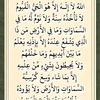 اللَّهُ لَا إِلَٰهَ إِلَّا هُوَ الْحَيُّ الْقَيُّومُ
لَا تَأْخُذُهُ سِنَةٌ وَلَا نَوْمٌ لَهُ مَا فِي
السَّمَاوَاتِ وَمَا فِي الْأَرْضِ مَنْ ذَا
الَّذِي يَشْفَعُ عِنْدَهُ إِلَّا بِإِذْنِهِ يَعْلَمُ
مَا بَيْنَ أَيْدِيهِمْ وَمَا خَلْفَهُمْ
وَلَا يُحِيطُونَ بِشَيْءٍ مِنْ عِلْمِهِ
إِلَّا بِمَا شَاءَ وَسِعَ كُرْسِيُّهُ
السَّمَاوَاتِ وَالْأَرْضَ وَلَا